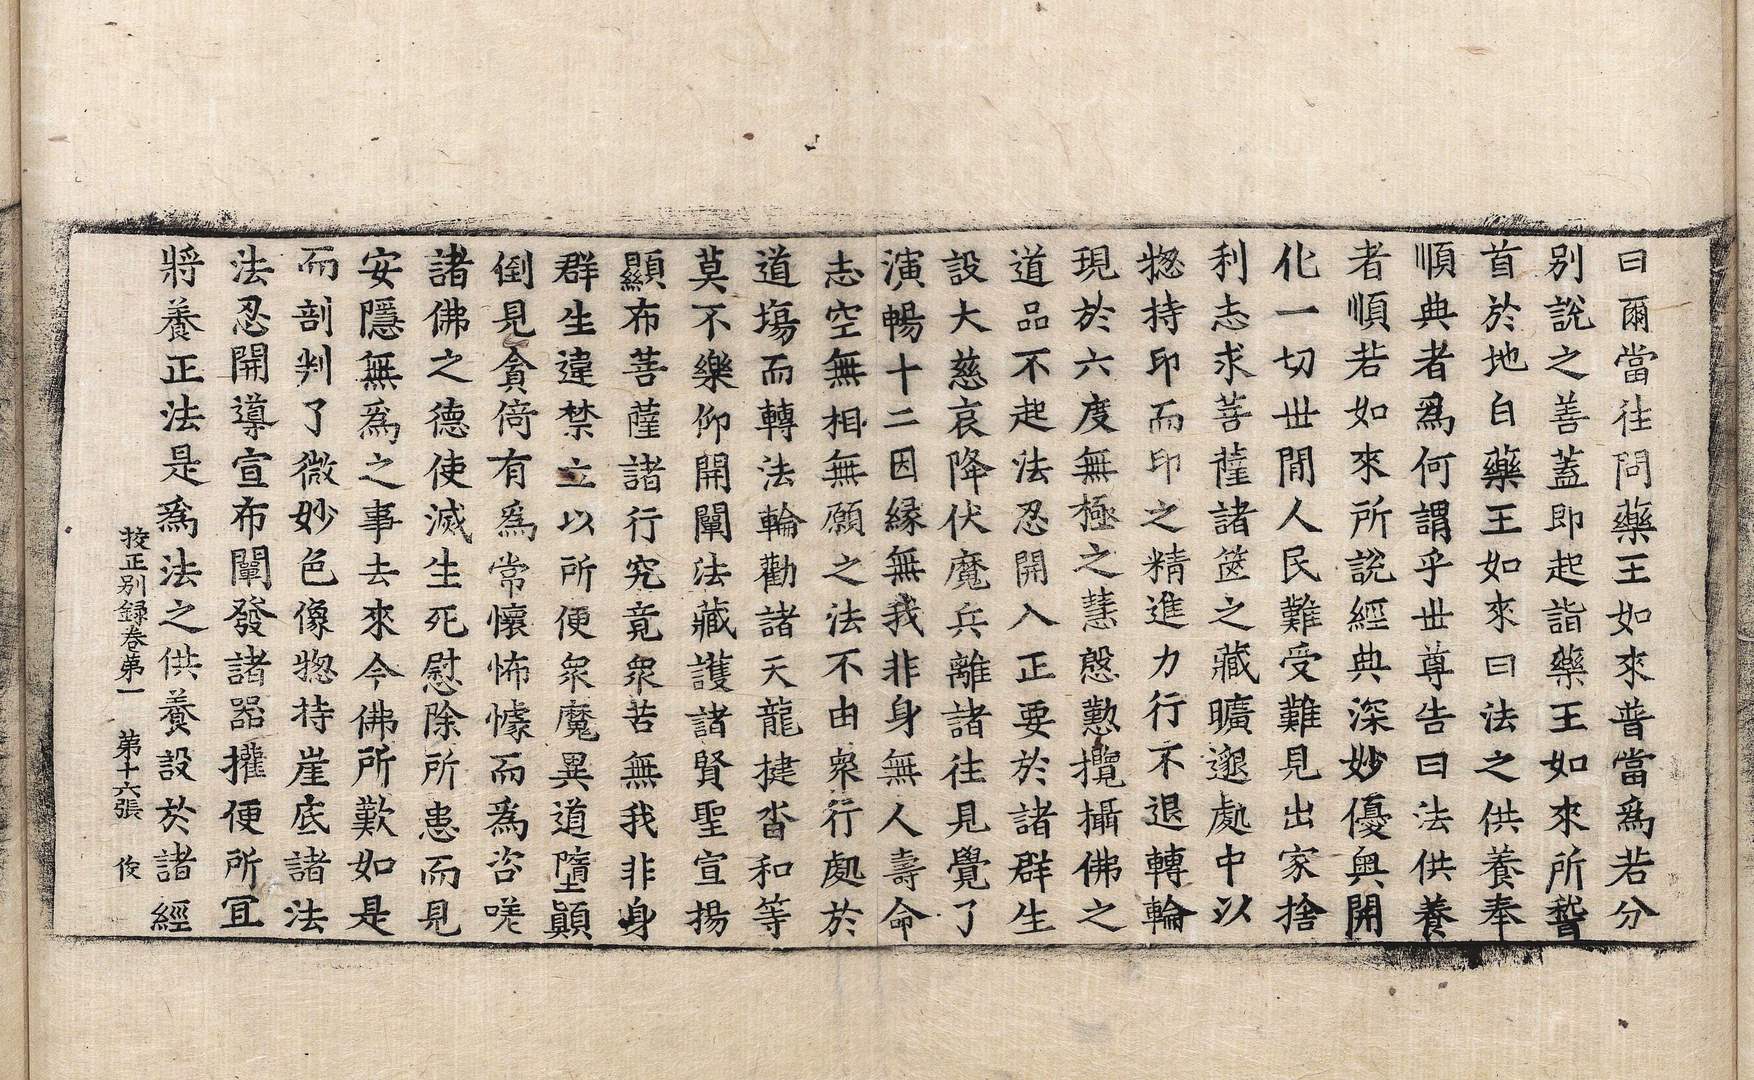 曰爾當往問藥王如來普當爲若分
別說之善蓋即起詣藥王如來所𥡴
首於地白藥王如來曰法之供養奉
順典者爲何謂乎丗尊告曰法供養
者順若如來所說經典深妙優奥開
化一切丗閒人民難受難見出家捨
利志求菩薩諸箧之藏曠邈處中以
惣持印而印之精進力行不退轉輪
現於六度無極之慧慇懃攬攝佛之
道品不起法忍開入正要於諸群生
設大慈哀降伏魔兵離諸往見覺了
演暢十二因縁無我非身無人壽命
志空無相無願之法不由衆行處於
道塲而轉法輪勸諸天龍揵沓和等
莫不樂仰開闡法藏護諸賢聖宣揚
顯布菩薩諸行究竟衆苦無我非身
群生違禁立以所便衆魔異道墮顚
倒見貪倚有爲常懷怖懅而爲咨嗟
諸佛之德使滅生死慰除所患而見
安隱無爲之事去來今佛所歎如是
而剖判了微妙色像惣持崖底諸法
法忍開導宣布闡發諸器攉便所冝
將養正法是爲法之供養設於諸經
挍正别録卷第一　第十六張　俊